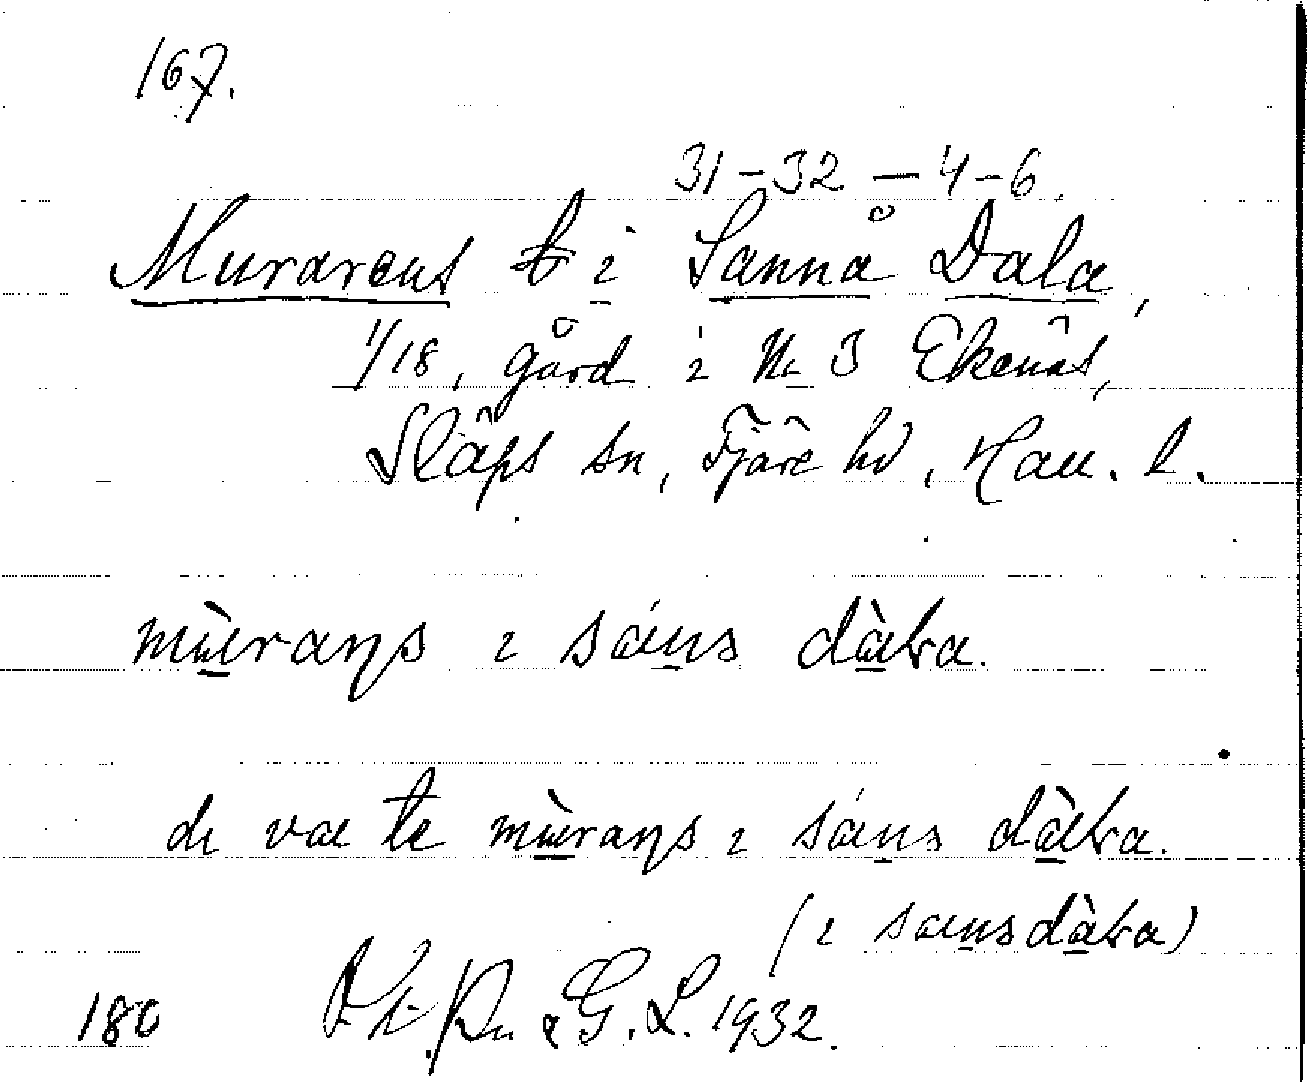 167.
31-32 - 4-6.
Murarens t i Sanna Dala,
1/18, gård i N: 3 Ekenäs,
Släps sn, Fjäre hd, Hall. l.
mùraŋs ɩ sáns dàɫa.
de va te mùraŋs ɩ sáns dàɫa.
(ɩ sansdàɫa)
180 G. L. 1932.